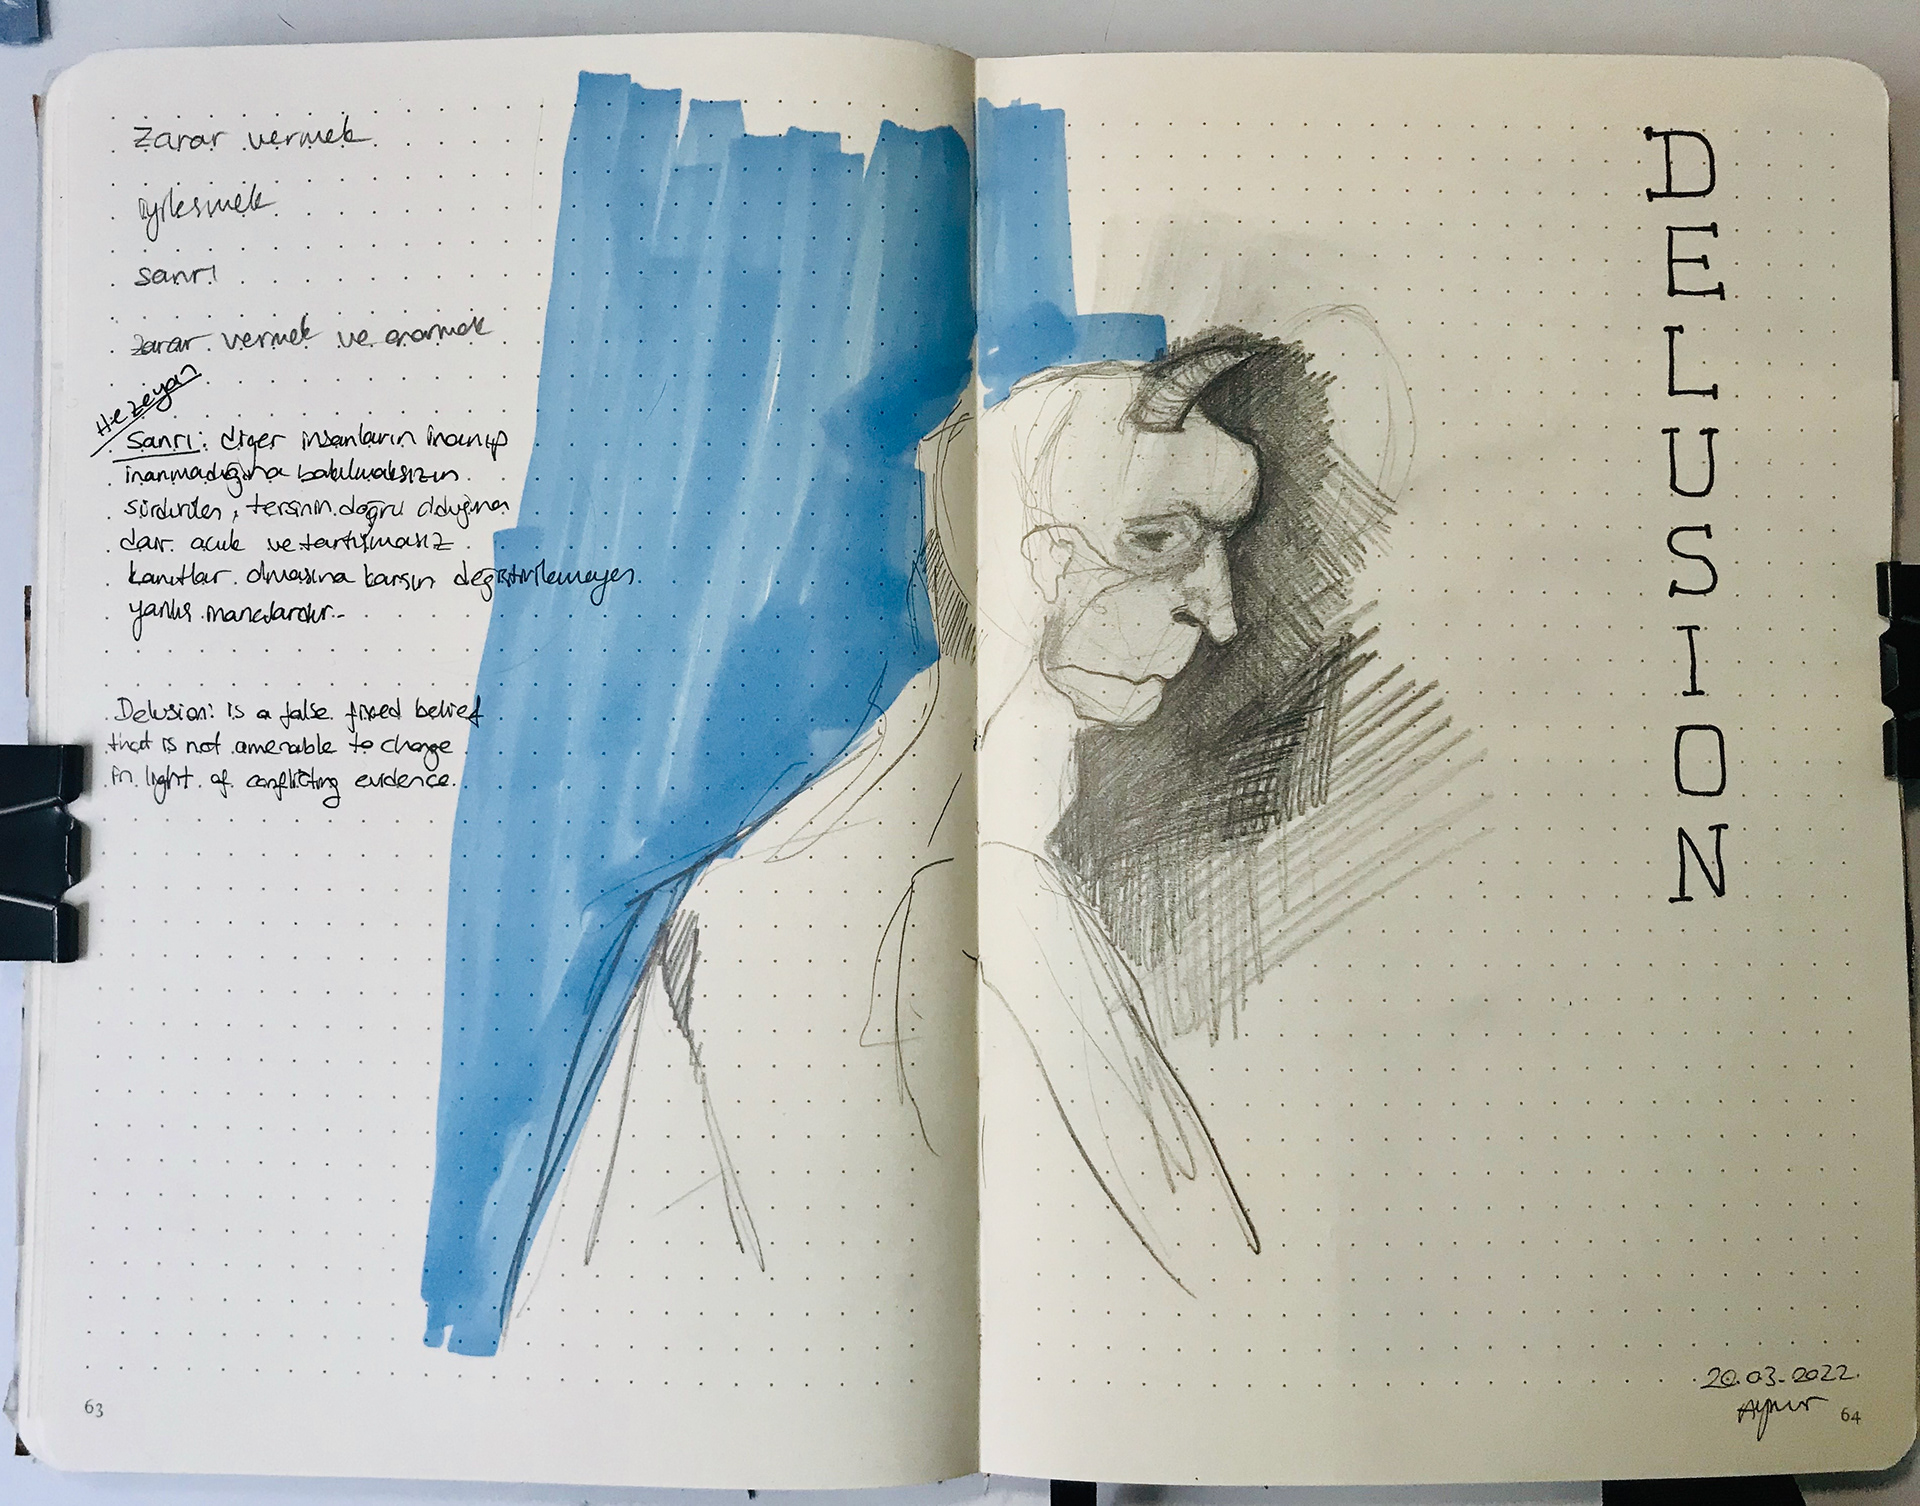 zarar vermek
iyileşmek
sanrı
zarar vermek ve onarmak
Hezeiyan
Sanrı: diğer insanların inanıp
inanmadığına bakılmaksızın
sürdürülen, tersinin doğru olduğuna
dair açık ve tartışmasız
kanıtlar olmasına karşın değiştirilemeyen
yanlış inançlardır.
Delusion: is a false fixed belief
that is not amenable to change
in light of conflicting evidence.
63
D
E
L
U
S
I
O
N
20.03.2022
64